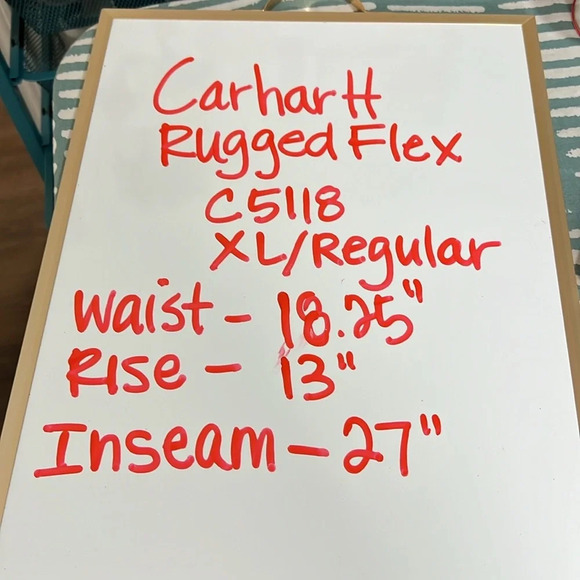 Carhartt
Rugged Flex
C5118
XL/Regular
Waist - 18.25"
Rise - 13"
Inseam - 27"